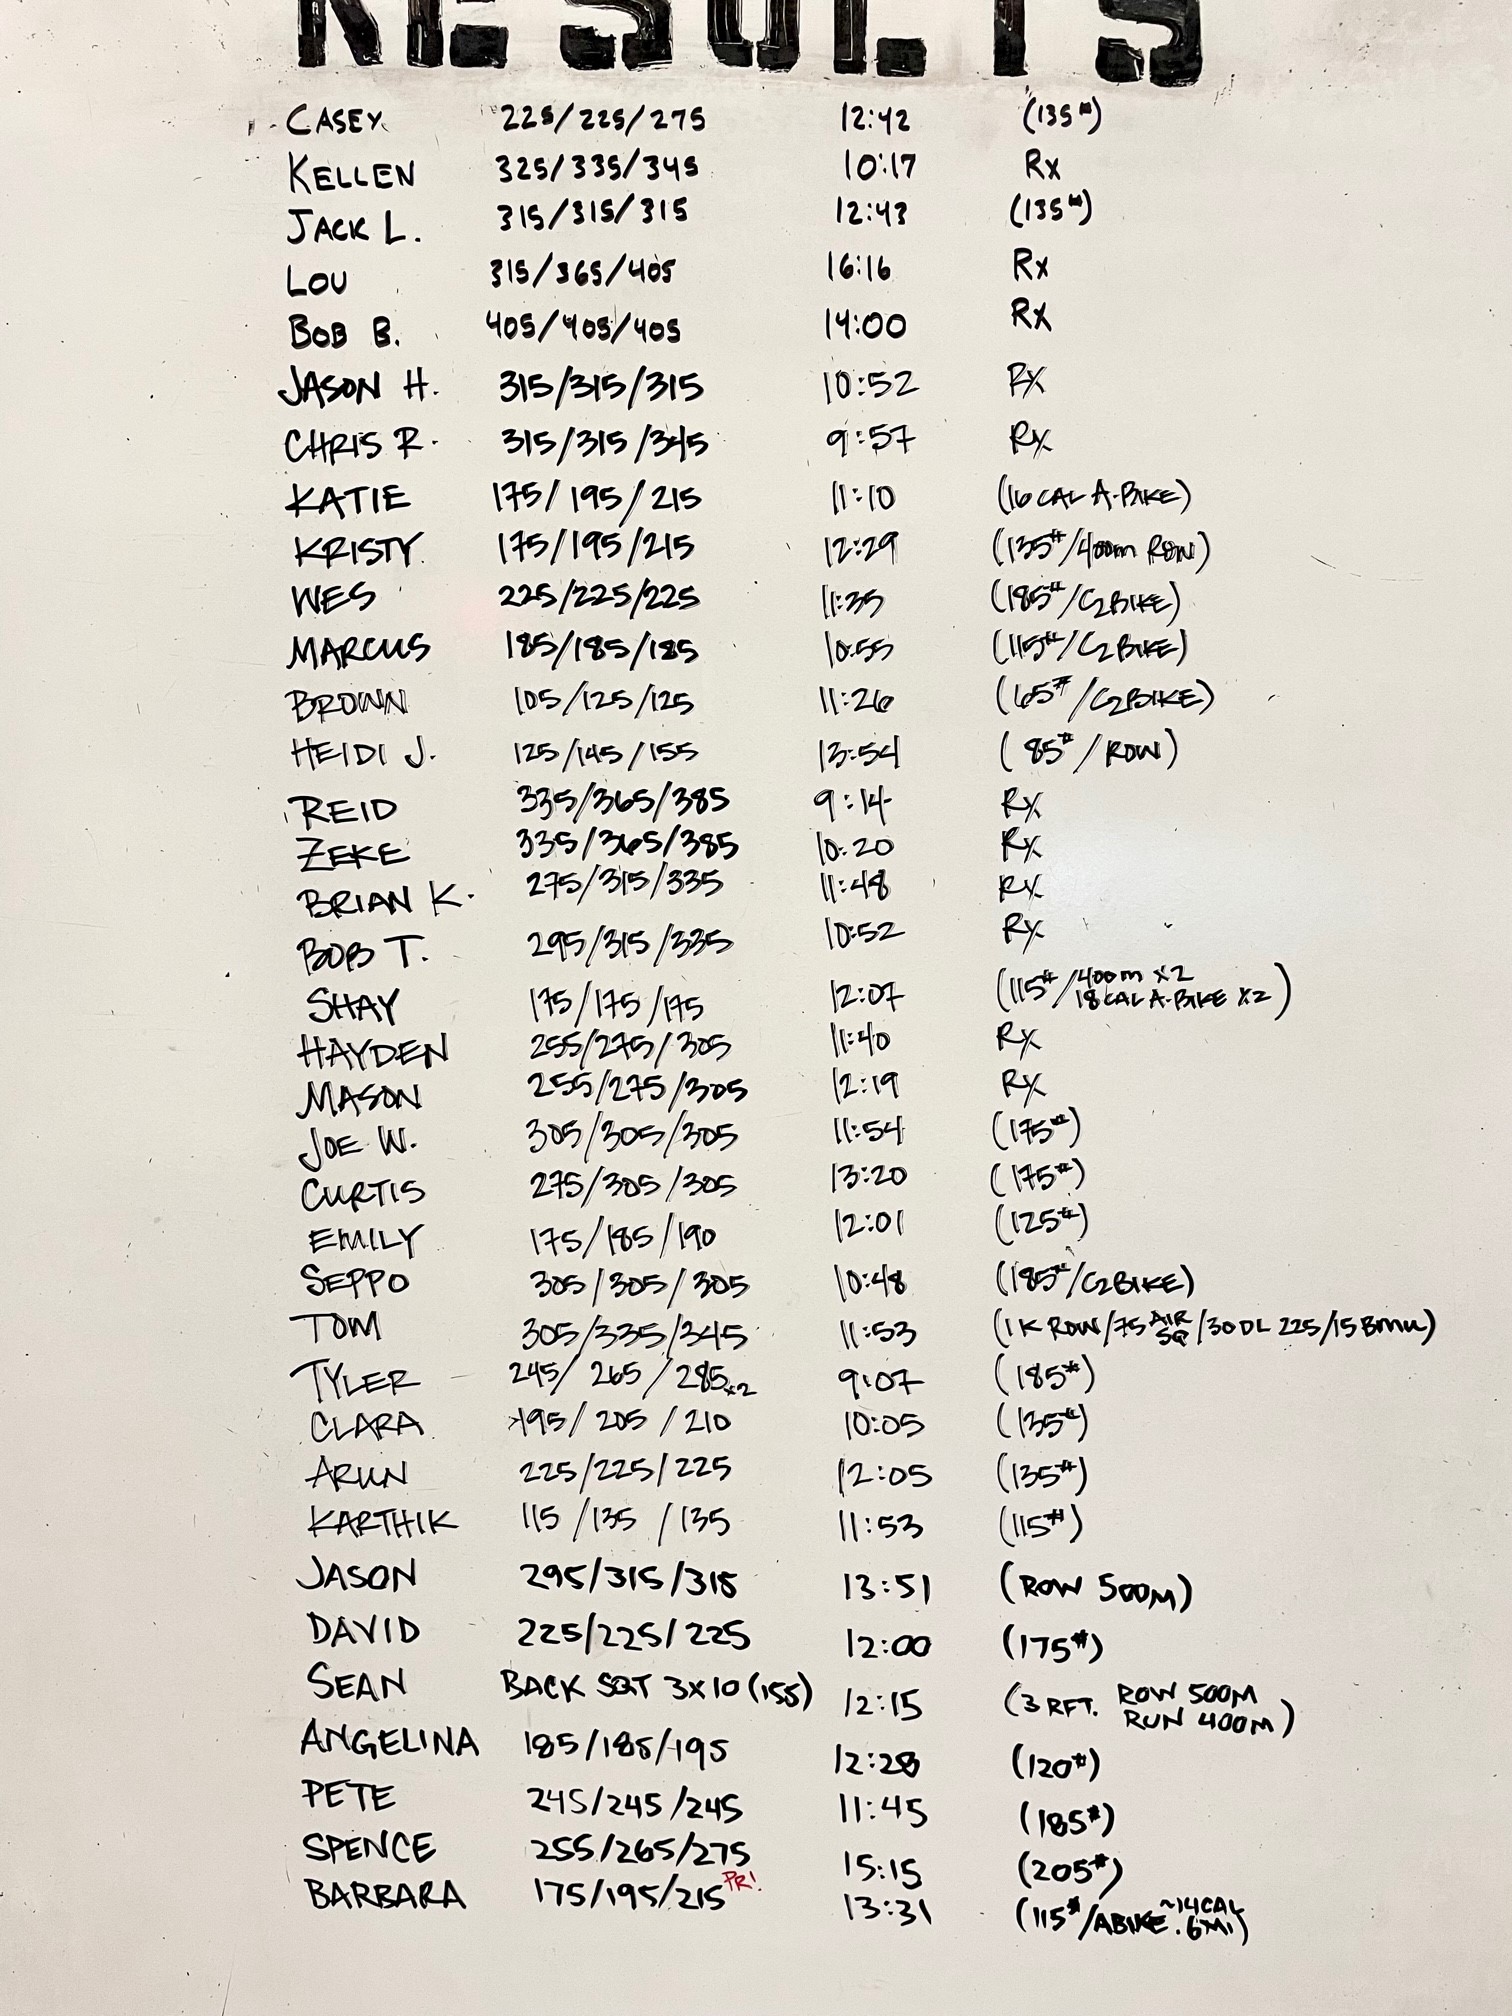 RESULTS
CASEY 225/225/275 12:42 (135#)
KELLEN 325/335/345 10:17 Rx
JACK L. 315/315/315 12:43 (135#)
LOU 315/365/405 16:16 Rx
BOB B. 405/405/405 14:00 Rx
JASON H. 315/315/315 10:52 Rx
CHRIS R. 315/315/345 9:57 Rx
KATIE 175/195/215 11:10 (16 CAL A-BIKE)
KRISTY 175/195/215 12:29 (135#/400m ROW)
WES 225/225/225 11:35 (185#/C2BIKE)
MARCUS 185/185/185 10:55 (115#/C2BIKE)
BROWN 105/125/125 11:26 (65#/C2BIKE)
HEIDI J. 125/145/155 13:54 (85#/ROW)
REID 335/365/385 9:14 Rx
ZEKE 335/365/385 10:20 Rx
BRIAN K. 275/315/335 11:48 Rx
BOB T. 295/315/335 10:52 Rx
SHAY 175/175/175 12:07 (115#/400m x2
18 CAL A-BIKE x2)
HAYDEN 255/275/305 11:40 Rx
MASON 255/275/305 12:19 Rx
JOE W. 305/305/305 11:54 (175#)
CURTIS 275/305/305 13:20 (175#)
EMILY 175/185/190 12:01 (125#)
SEPPO 305/305/305 10:48 (185#/C2BIKE)
TOM 305/335/345 11:53 (1K ROW/75 AIR SQ/30 DL 225/15 BMU)
TYLER 245/265/285x2 9:07 (185#)
CLARA 195/205/210 10:05 (135#)
ARUN 225/225/225 12:05 (135#)
KARTHIK 115/135/135 11:53 (115#)
JASON 295/315/315 13:51 (ROW 500M)
DAVID 225/225/225 12:00 (175#)
SEAN BACK SQT 3X10 (155) 12:15 (3 RFT. ROW 500M
RUN 400M)
ANGELINA 185/185/195 12:28 (120#)
PETE 245/245/245 11:45 (185#)
SPENCE 255/265/275 15:15 (205#)
BARBARA 175/195/215 PR! 13:31 (115#/ABIKE ~14CAL
.6MI)